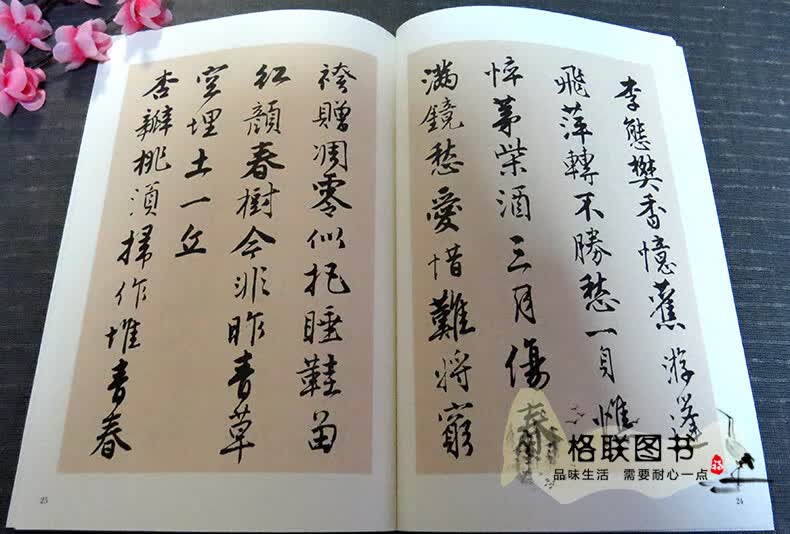 李態樊香憶舊游蓬
飛萍轉不勝愁一身憔
悴茅柴酒三月傷春
滿鏡愁愛惜難將窮
袴贈凋零似把睡鞋留
紅顏春樹今非昨青草
空埋土一丘
杏瓣桃須掃作堆青春
24
25
格联图书
品味生活 需要耐心一点